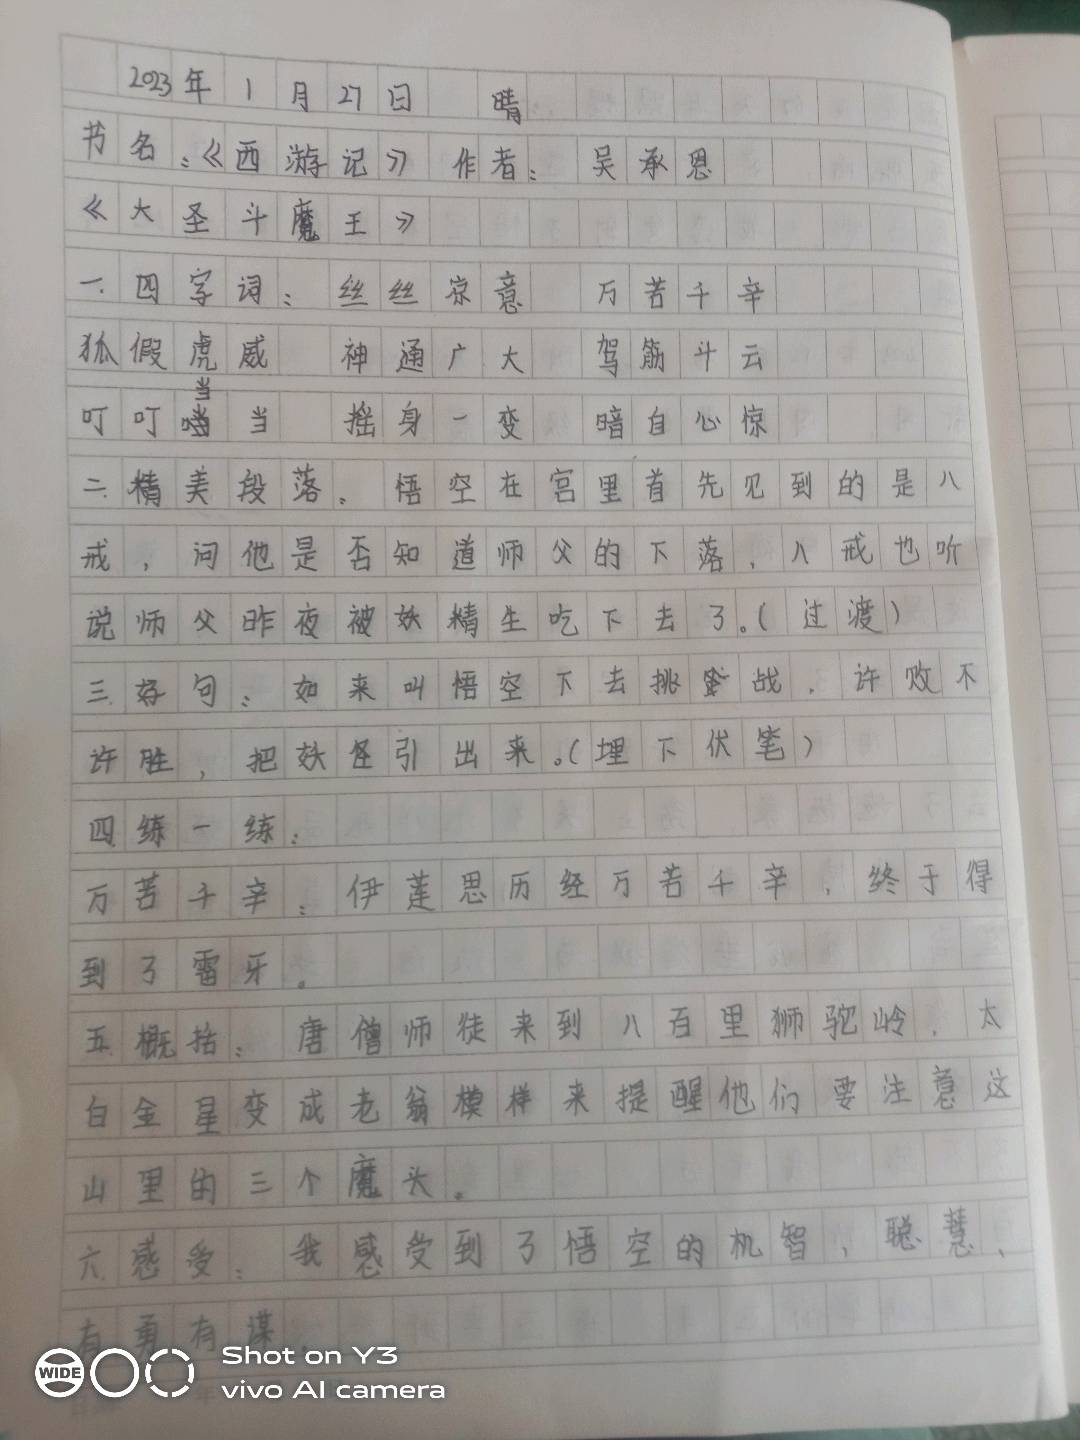 2023年1月27日 晴
书名：《西游记》 作者：吴承恩
《大圣斗魔王》
一.四字词： 丝丝凉意 万苦千辛
狐假虎威 神通广大 驾筋斗云
叮叮当当 摇身一变 暗自心惊
二.精美段落. 悟空在宫里首先见到的是八
戒，问他是否知道师父的下落，八戒也听
说师父昨夜被妖精生吃下去了。（过渡）
三.好句：如来叫悟空下去挑战，许败不
许胜，把妖怪引出来。（埋下伏笔）
四.练一练：
万苦千辛：伊莲思历经万苦千辛，终于得
到了雷牙。
五.概括：唐僧师徒来到八百里狮驼岭，太
白金星变成老翁模样来提醒他们要注意这
山里的三个魔头。
六.感受：我感受到了悟空的机智、聪慧、
有勇有谋。
WIDE
Shot on Y3
vivo AI camera